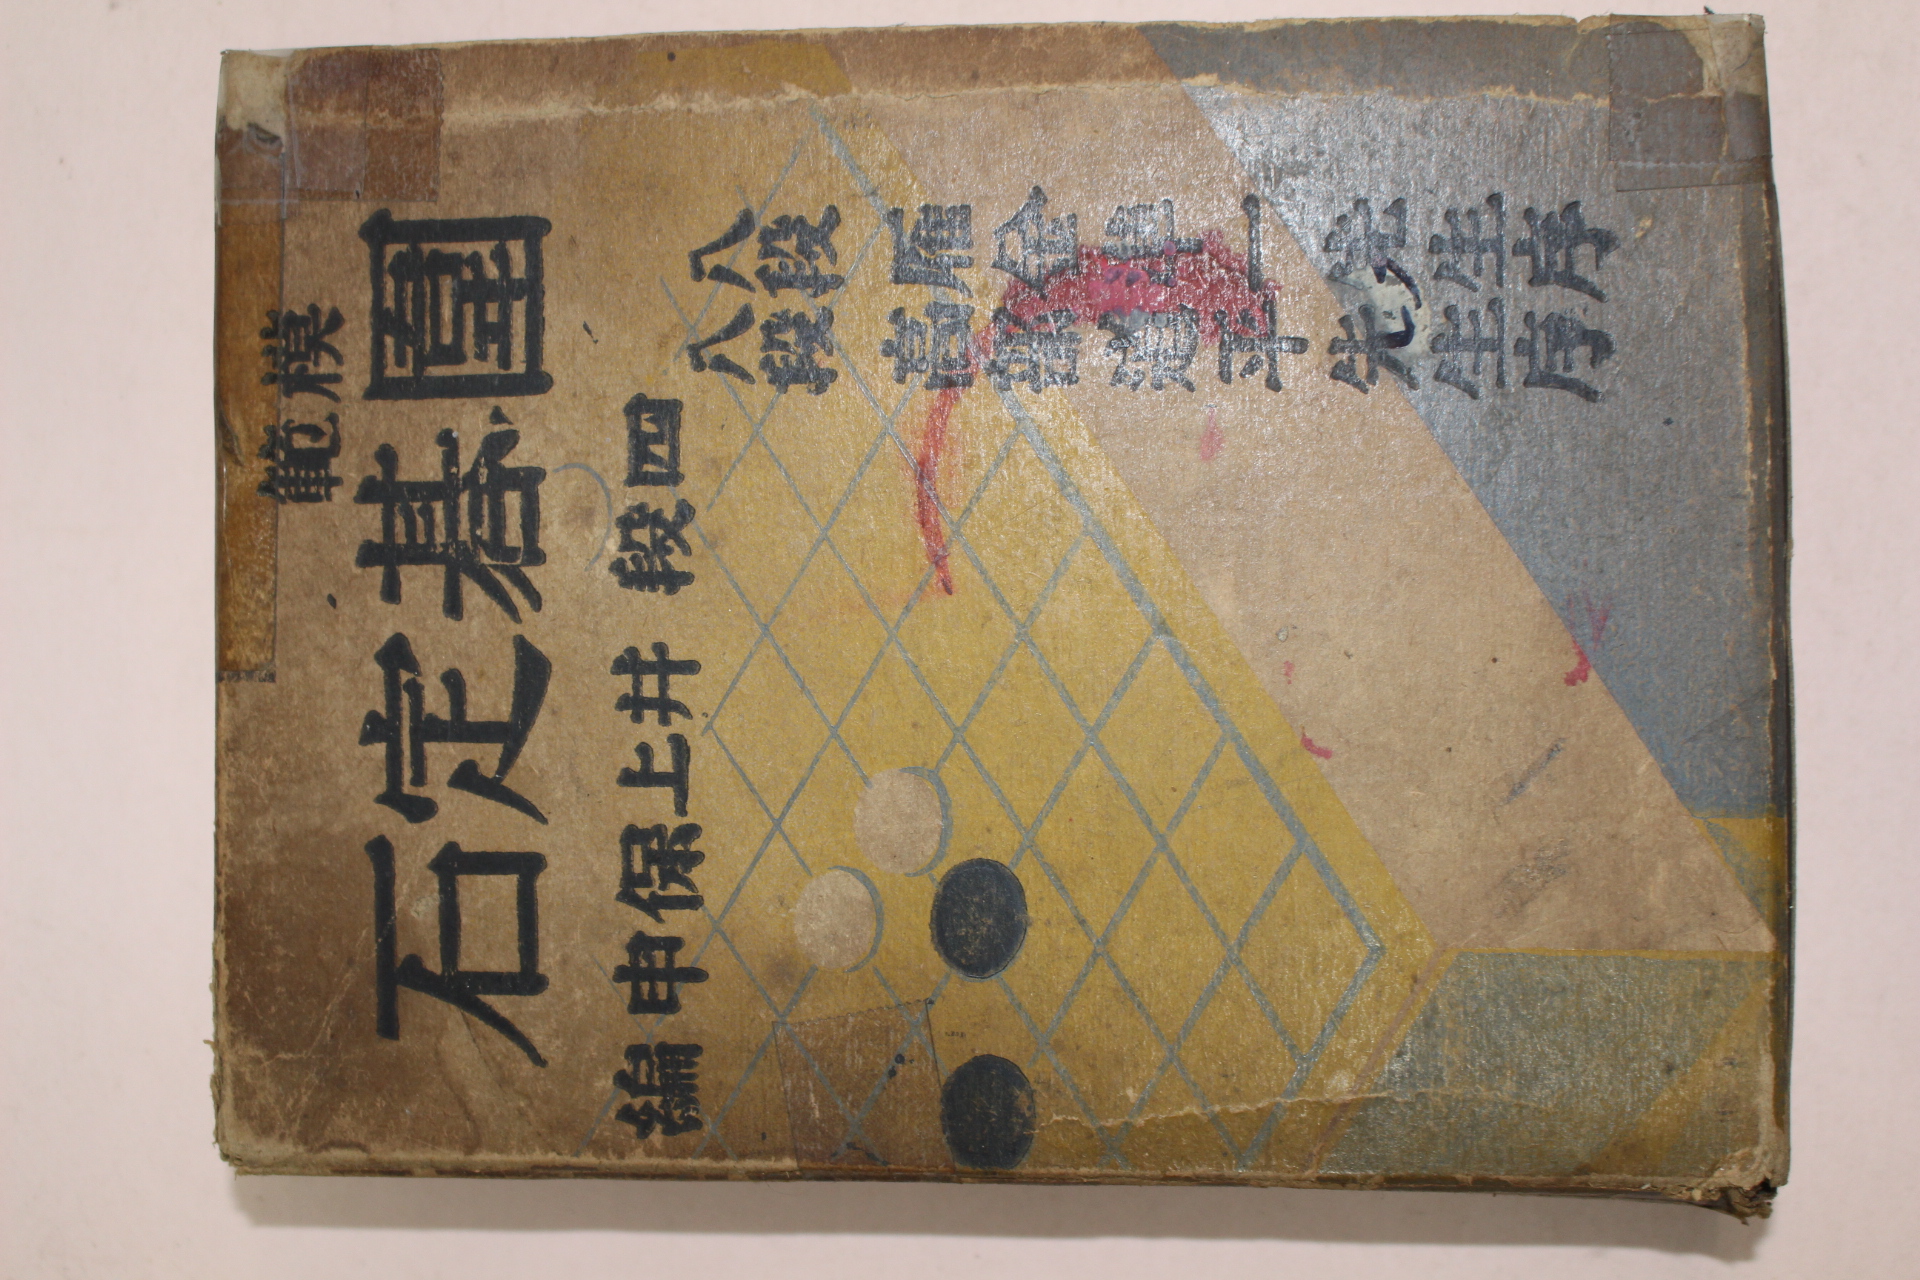 模範
圍碁定石
四段 井上保申 編
八段 雁金準一先生序
八段 高部道平先生序